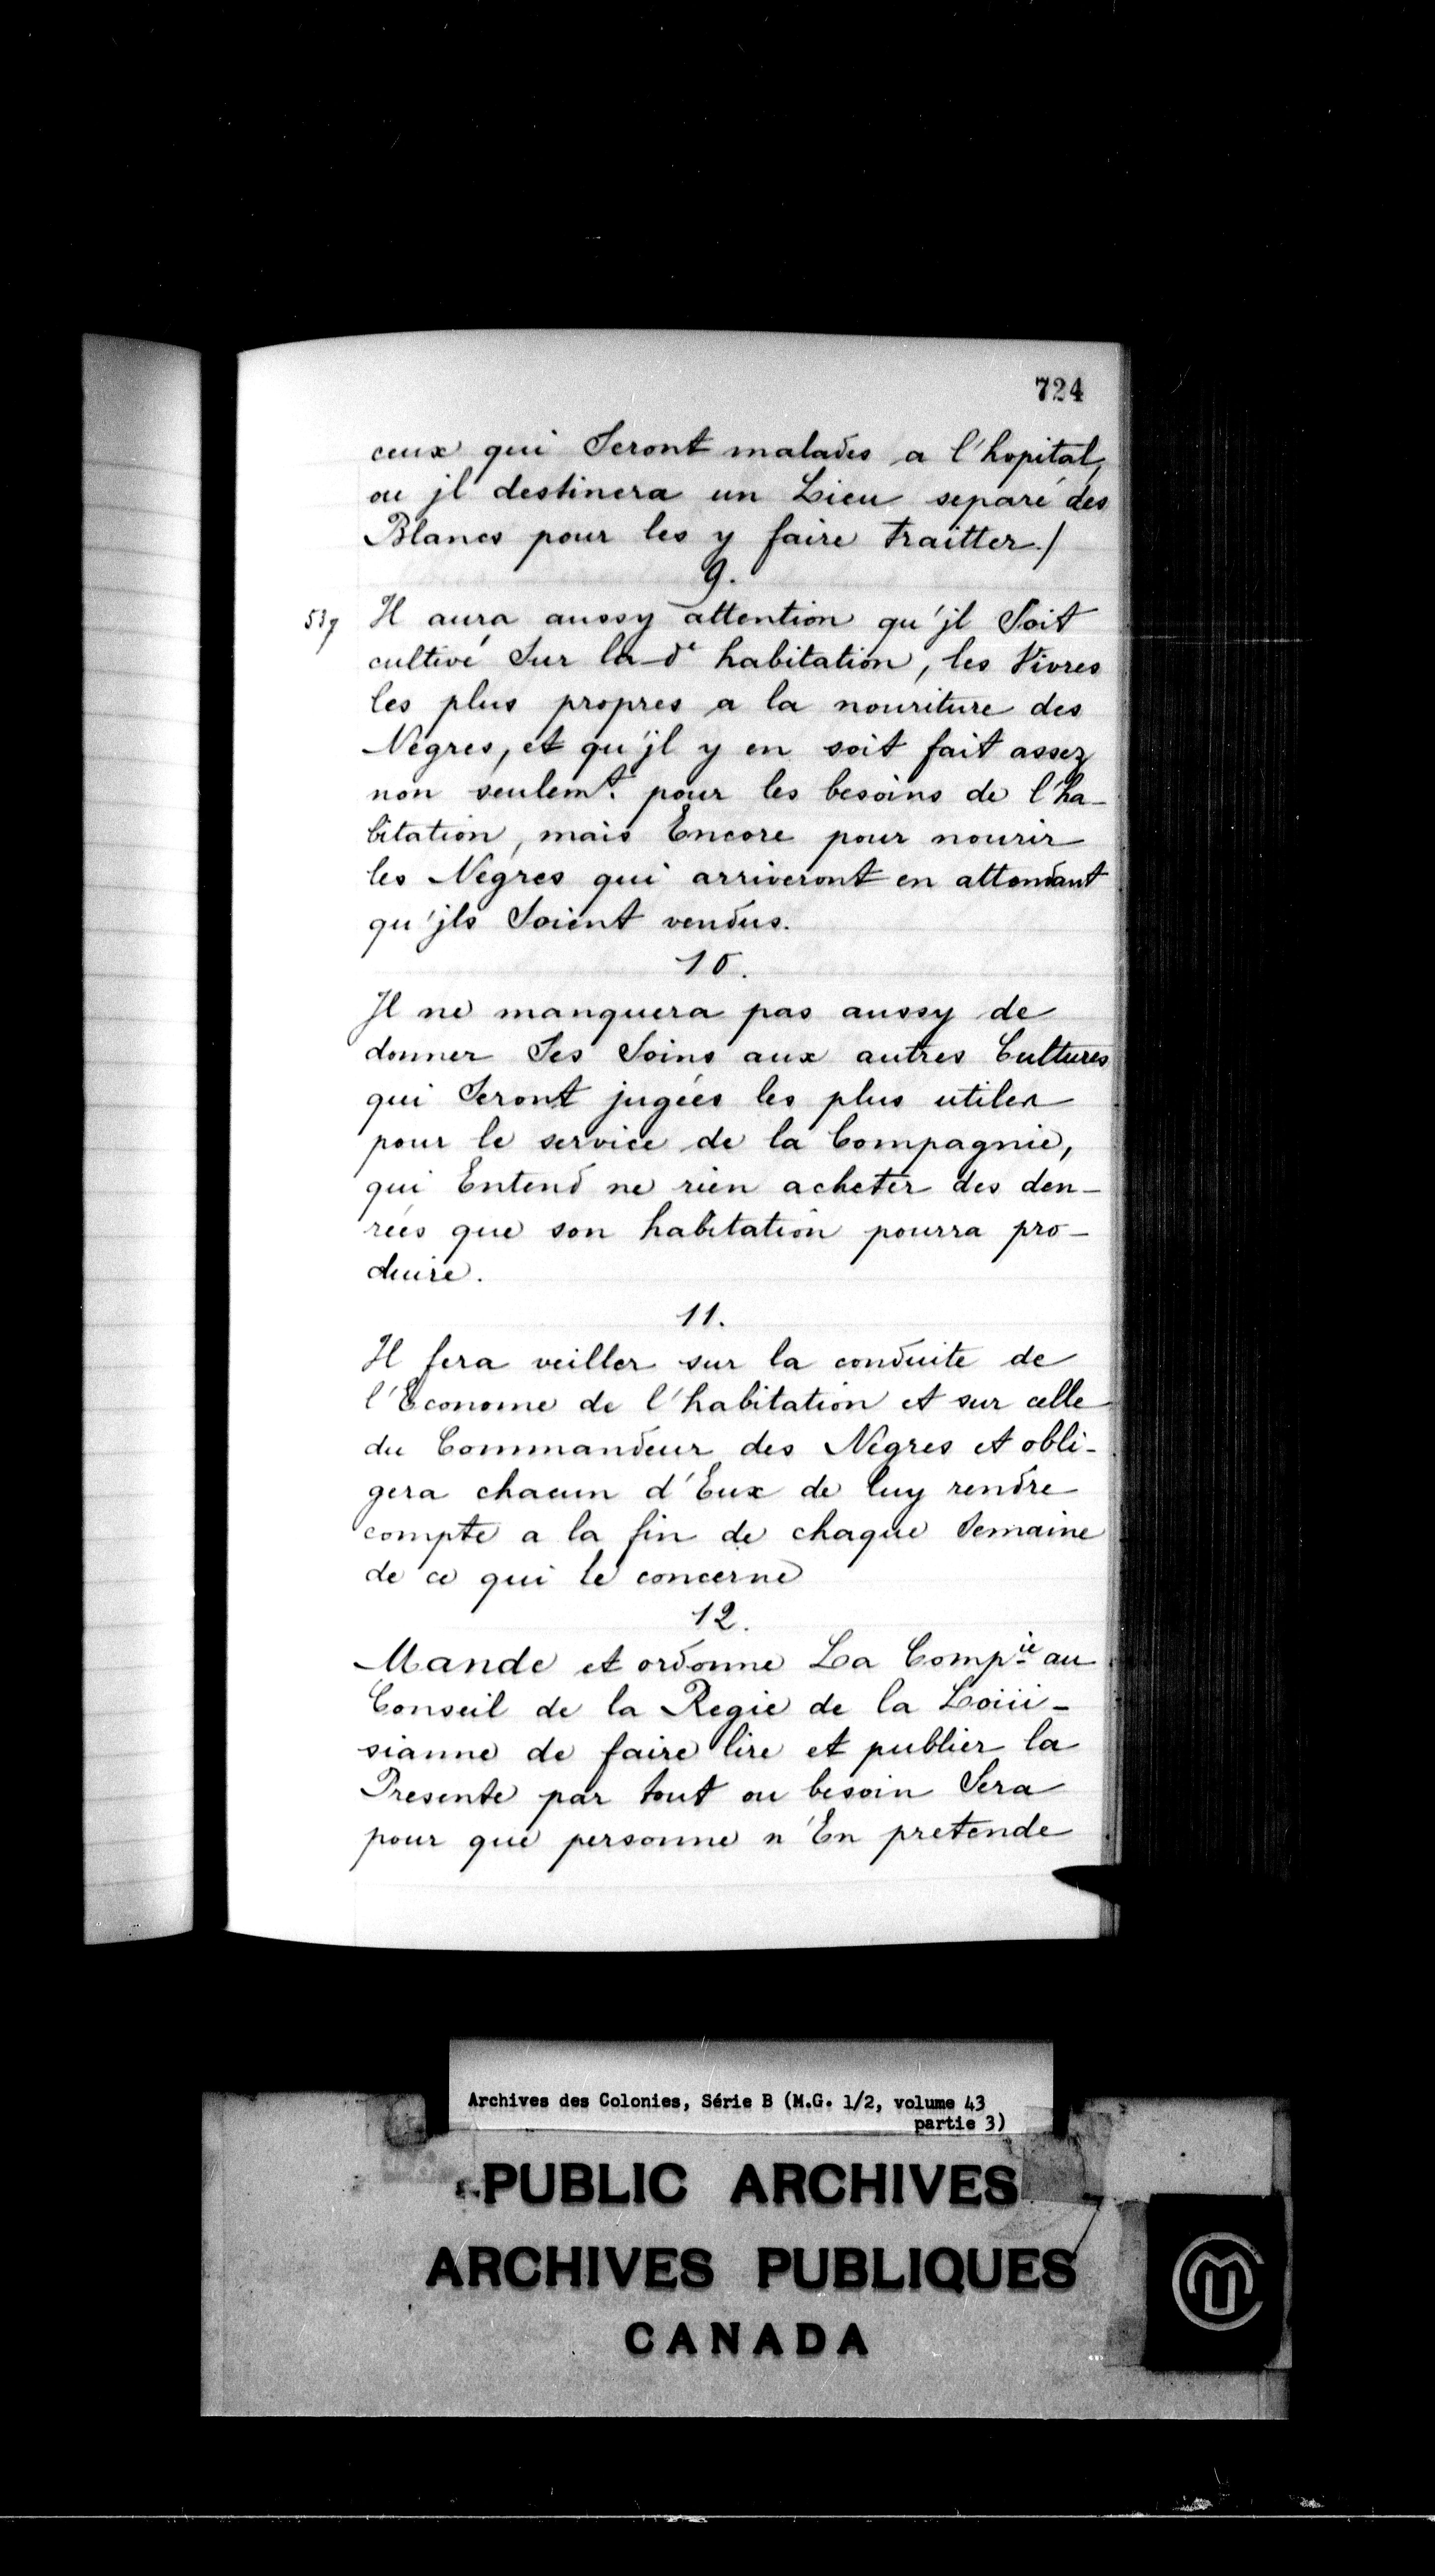 724
ceux qui Seront malades a l'hopital,
ou jl destinera un Lieu separé des
Blancs pour les y faire traitter./
9.
Il aura aussy attention qu'jl Soit
cultivé Sur la de habitation, les Vivres
les plus propres a la nouriture des
Negres, et qu'jl y en soit fait assez
non seulemt. pour les besoins de l'ha-
bitation, mais Encore pour nourir
les Negres qui arriveront en attendant
qu'jls Soient vendus.
10.
Il ne manquera pas aussy de
donner Ses Soins aux autres Cultures
qui Seront jugées les plus utiles
pour le service de la Compagnie,
qui Entend ne rien acheter des den-
rées que son habitation pourra pro-
duire.
11.
Il fera veiller sur la conduite de
l'Econome de l'habitation et sur celle
du Commandeur des Negres et obli-
gera chacun d'Eux de luy rendre
compte a la fin de chaque Semaine
de ce qui le concerne
12.
Mande et ordonne La Compie au
Conseil de la Regie de la Loiii-
sianne de faire lire et publier la
Presente par tout ou besoin Sera
pour que personne n'En pretende
Archives des Colonies, Série B (M.G. 1/2, volume 43
partie 3)
PUBLIC ARCHIVES
ARCHIVES PUBLIQUES
CANADA